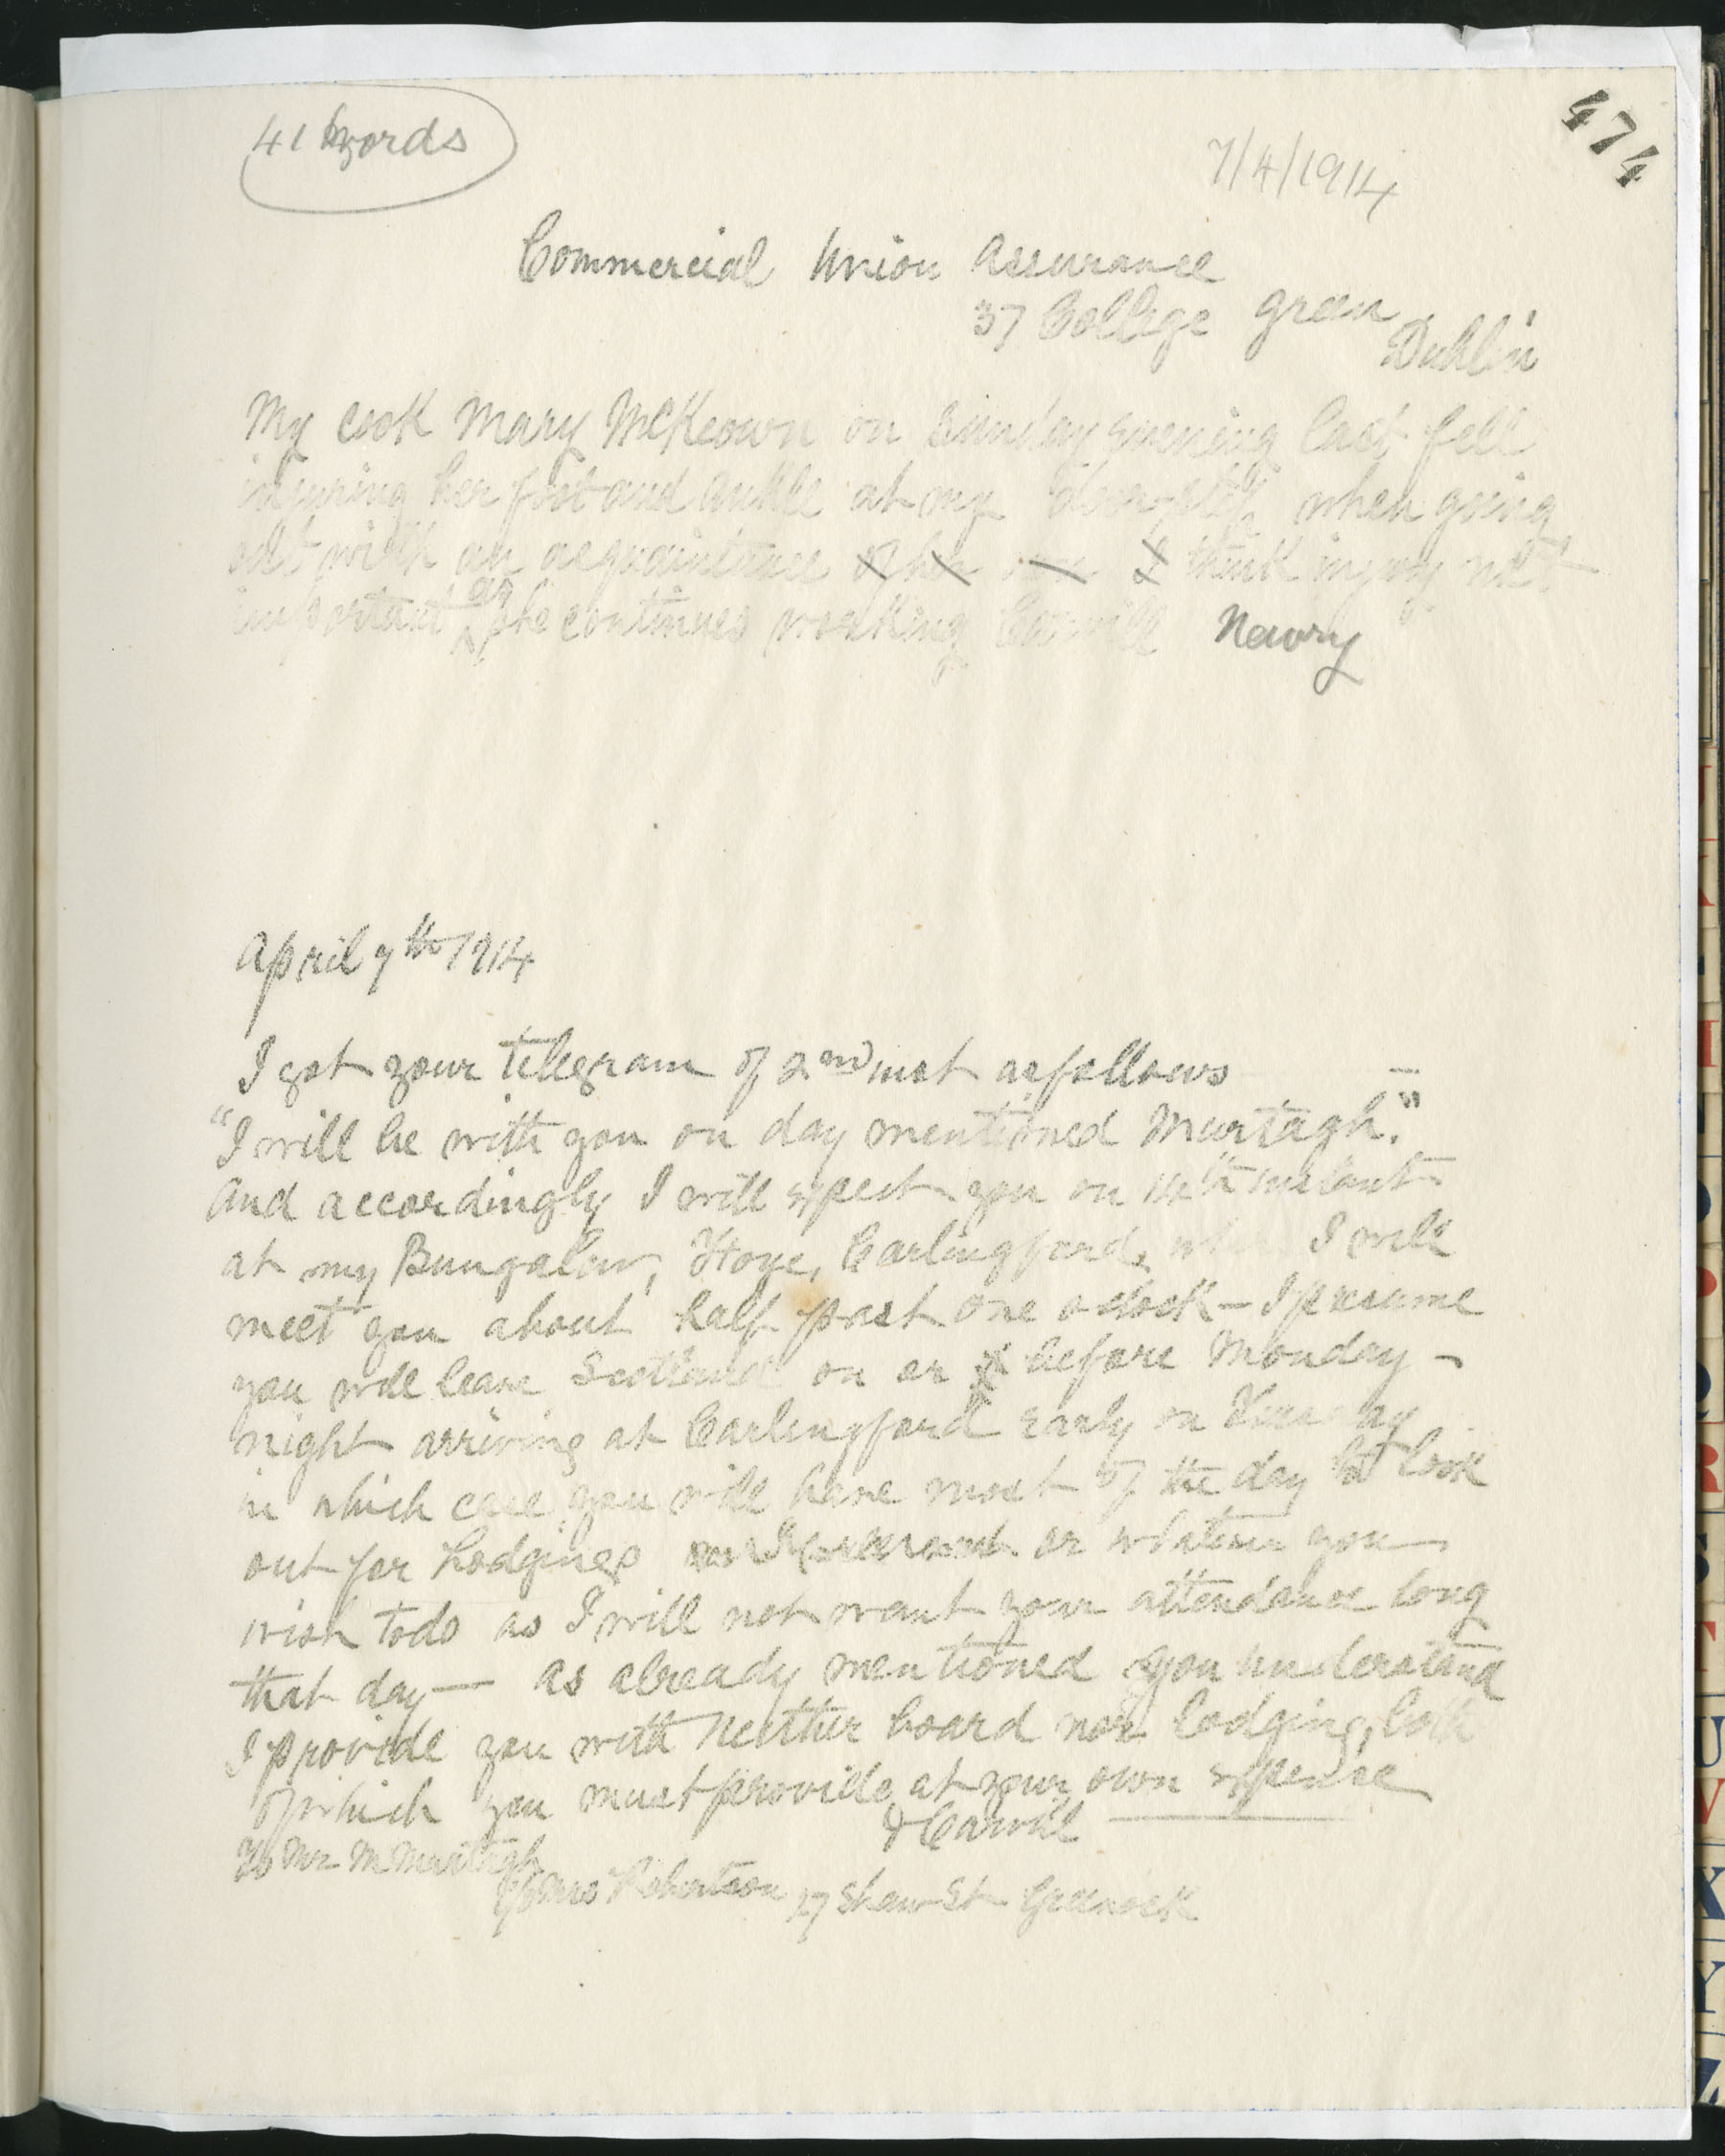 474
41 words
7/4/1914
Commercial Union Assurance
37 College Green
Dublin
My cook Mary McKeown on Sunday evening last fell
injuring her foot and ankle at my door-step when going
out with an acquaintance of her own I think injury not
important as she continues working Carvill Newry
April 7th 1914
I got your telegram of 2nd inst as follows
"I will be with you on day mentioned Murtagh."
And accordingly I will expect you on 14th instant
at my Bungalow, Kroye, Carlingford, I will
meet you about half past one oclock - I presume
you will leave Scotland on or before Monday -
night arriving at Carlingford early on Tuesday
in which case you will have most of the day to look
out for Lodgings or whatever you
wish to do as I will not want your attendance long
that day - as already mentioned you understand
I provide you with neither board nor lodging, both
of which you must provide at your own expense
Carvill
To Mr M Murtagh
c/o Mrs Robertson 27 Shaw St Greenock